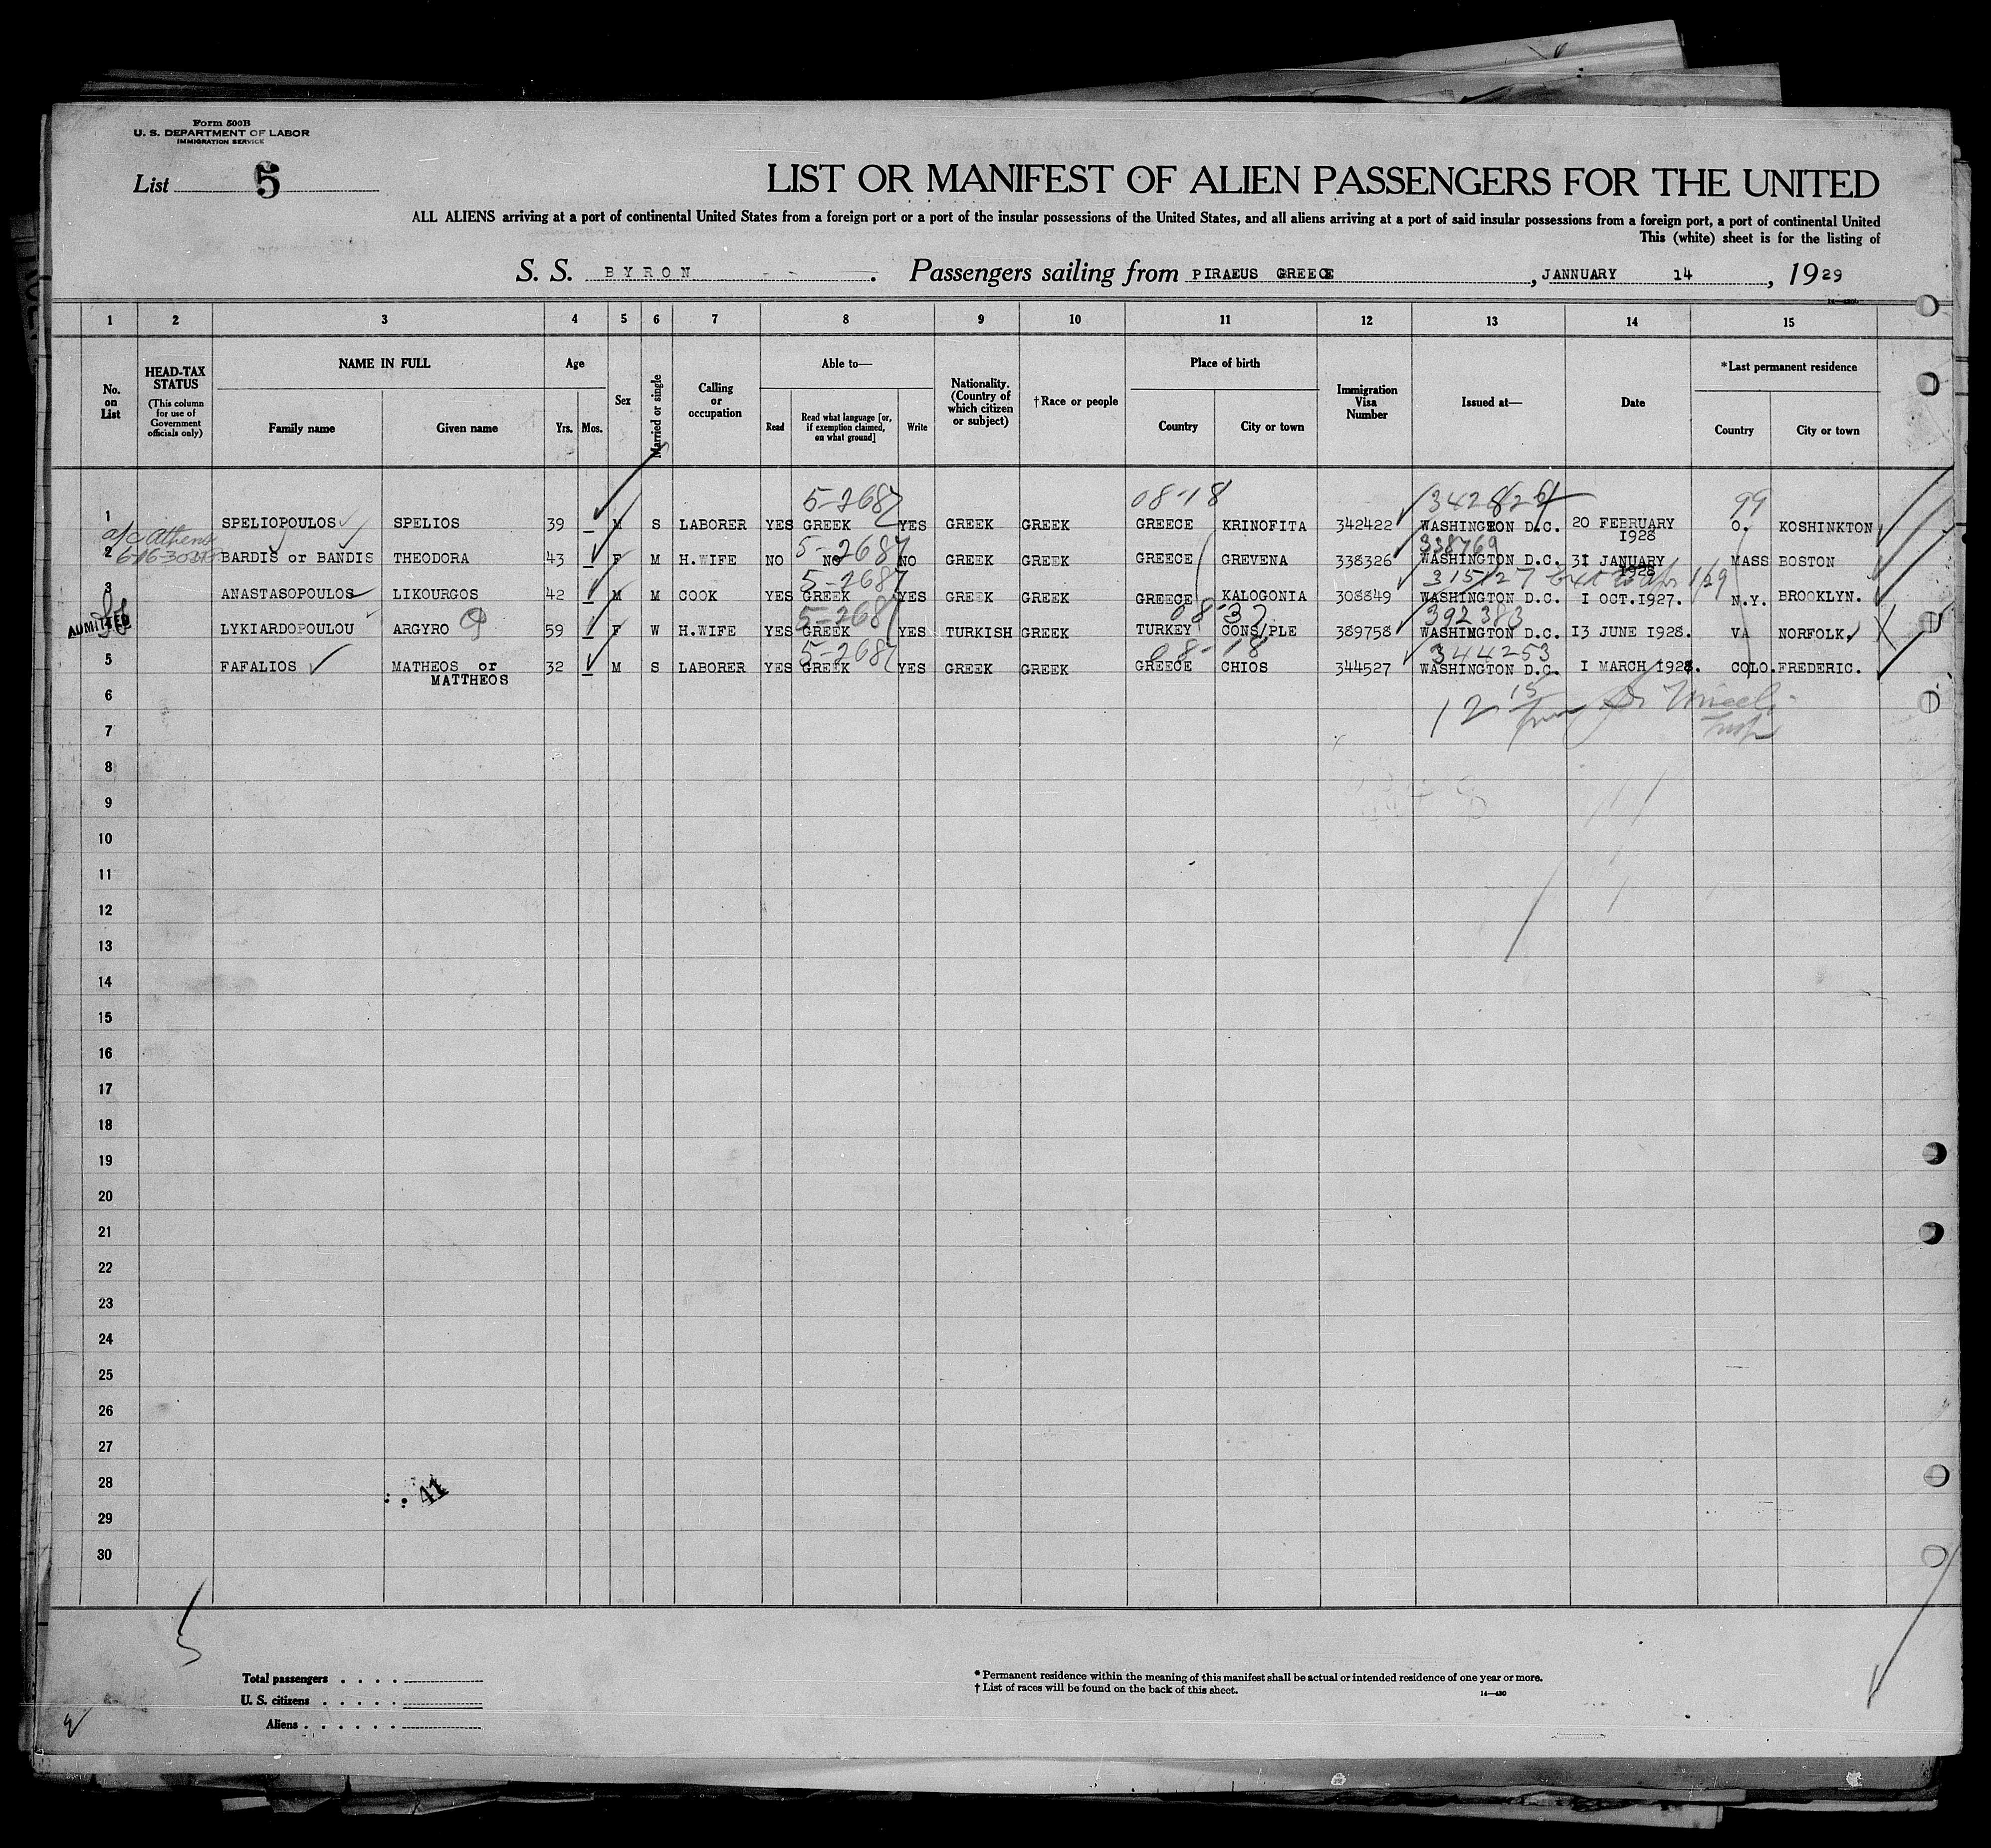 Form 500B
U. S. DEPARTMENT OF LABOR
IMMIGRATION SERVICE
List 5
LIST OR MANIFEST OF ALIEN PASSENGERS FOR THE UNITED
ALL ALIENS arriving at a port of continental United States from a foreign port or a port of the insular possessions of the United States, and all aliens arriving at a port of said insular possessions from a foreign port, a port of continental United
This (white) sheet is for the listing of
S. S. BYRON. Passengers sailing from PIRAEUS GREECE, JANNUARY 14, 1929
1 2 3 4 5 6 7 8 9 10 11 12 13 14 15
No. on List
HEAD-TAX STATUS (This column for use of Government officials only)
NAME IN FULL
Family name Given name
Age
Yrs. Mos.
Sex
Married or single
Calling or occupation
Able to—
Read
Read what language [or, if exemption claimed, on what ground]
Write
Nationality. (Country of which citizen or subject)
†Race or people
Place of birth
Country City or town
Immigration Visa Number
Issued at—
Date
*Last permanent residence
Country City or town
5-2687 08-18 342826 99
1 SPELIOPOULOS SPELIOS 39 M S LABORER YES GREEK YES GREEK GREEK GREECE KRINOFITA 342422 WASHINGTON D.C. 20 FEBRUARY 1928 O. KOSHINKTON
a/c Athens
5-2687 338769
2 BARDIS or BANDIS THEODORA 43 F M H.WIFE NO NO NO GREEK GREEK GREECE GREVENA 338326 WASHINGTON D.C. 31 JANUARY 1928 MASS BOSTON
5-2687 315127
3 ANASTASOPOULOS LIKOURGOS 42 M M COOK YES GREEK YES GREEK GREEK GREECE KALOGONIA 308849 WASHINGTON D.C. 1 OCT.1927. N.Y. BROOKLYN.
5-2687 08-37 392383
ADMITTED LYKIARDOPOULOU ARGYRO 59 F W H.WIFE YES GREEK YES TURKISH GREEK TURKEY CONS/PLE 389758 WASHINGTON D.C. 13 JUNE 1928. VA NORFOLK.
5-2687 08-18 344253
5 FAFALIOS MATHEOS or MATTHEOS 32 M S LABORER YES GREEK YES GREEK GREEK GREECE CHIOS 344527 WASHINGTON D.C. 1 MARCH 1928. COLO. FREDERIC.
6
7
8
9
10
11
12
13
14
15
16
17
18
19
20
21
22
23
24
25
26
27
28
41
29
30
5
Total passengers
U. S. citizens
Aliens
* Permanent residence within the meaning of this manifest shall be actual or intended residence of one year or more.
† List of races will be found on the back of this sheet.
14—430